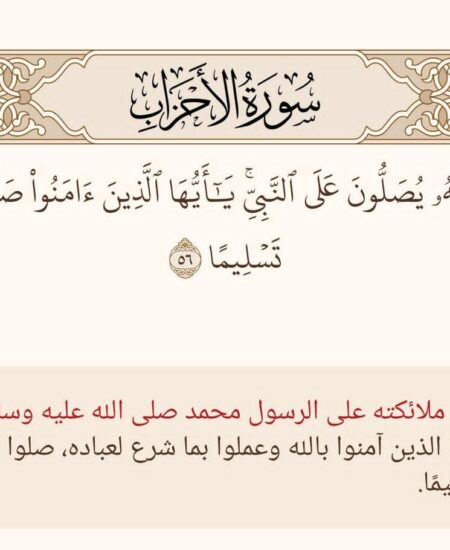 سُورَةُ الأَحْزَابِ
يُصَلُّونَ عَلَى ٱلنَّبِيِّۚ يَـٰٓأَيُّهَا ٱلَّذِينَ ءَامَنُوا۟
تَسْلِيمًا ٥٦
ملائكته على الرسول محمد صلى الله عليه
الذين آمنوا بالله وعملوا بما شرع لعباده، صلوا